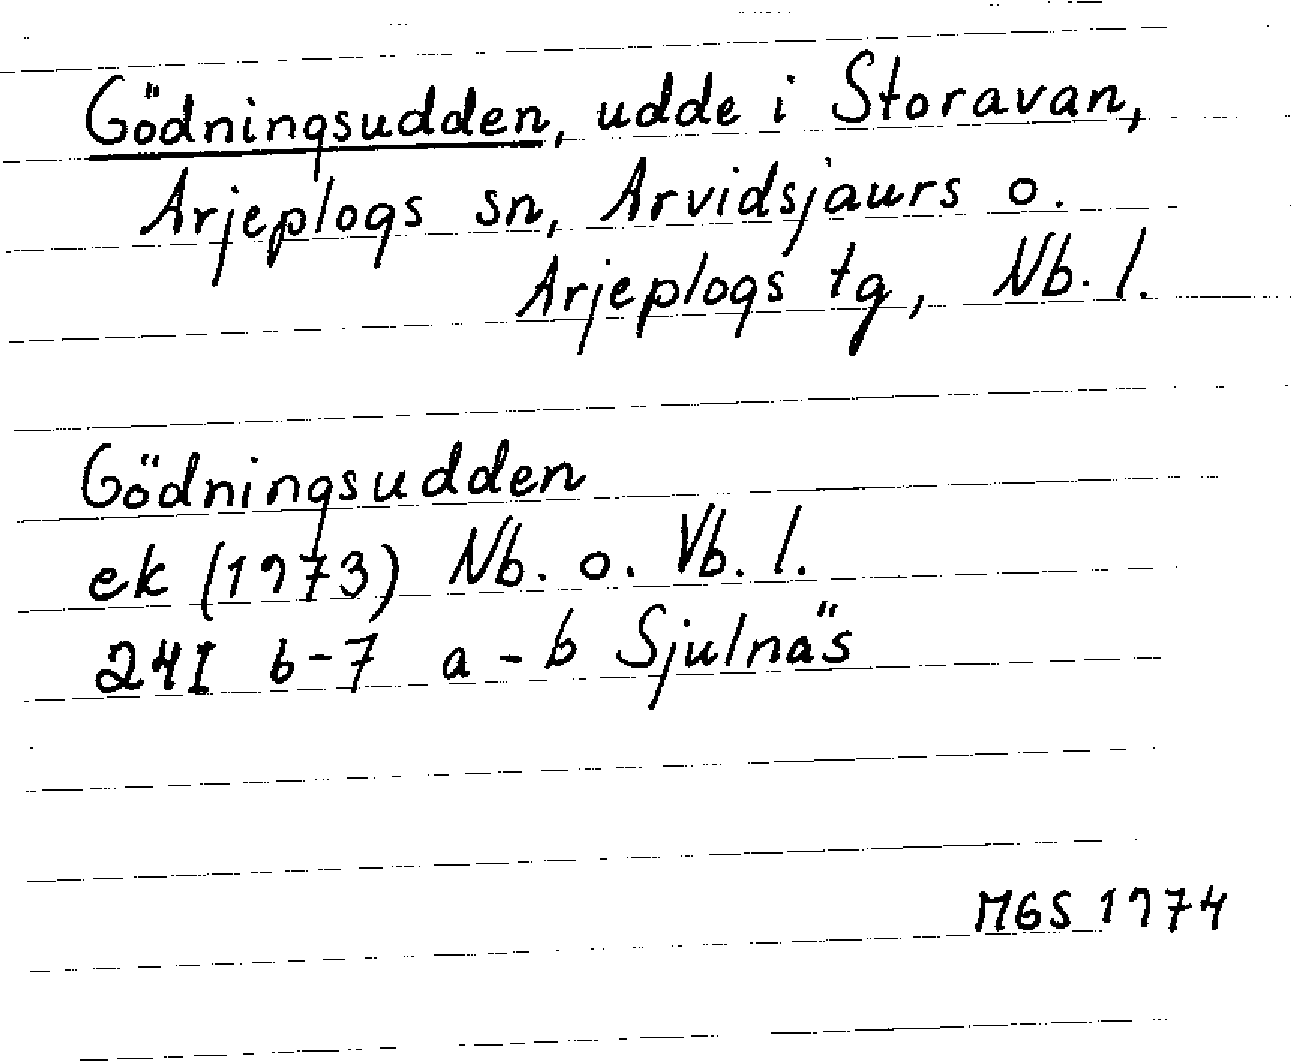 Gödningsudden, udde i Storavan,
Arjeplogs sn, Arvidsjaurs o.
Arjeplogs tg, Nb. l.
Gödningsudden
ek (1973) Nb. o. Vb. l.
24I 6-7 a-b Sjulnäs
MGS 1974